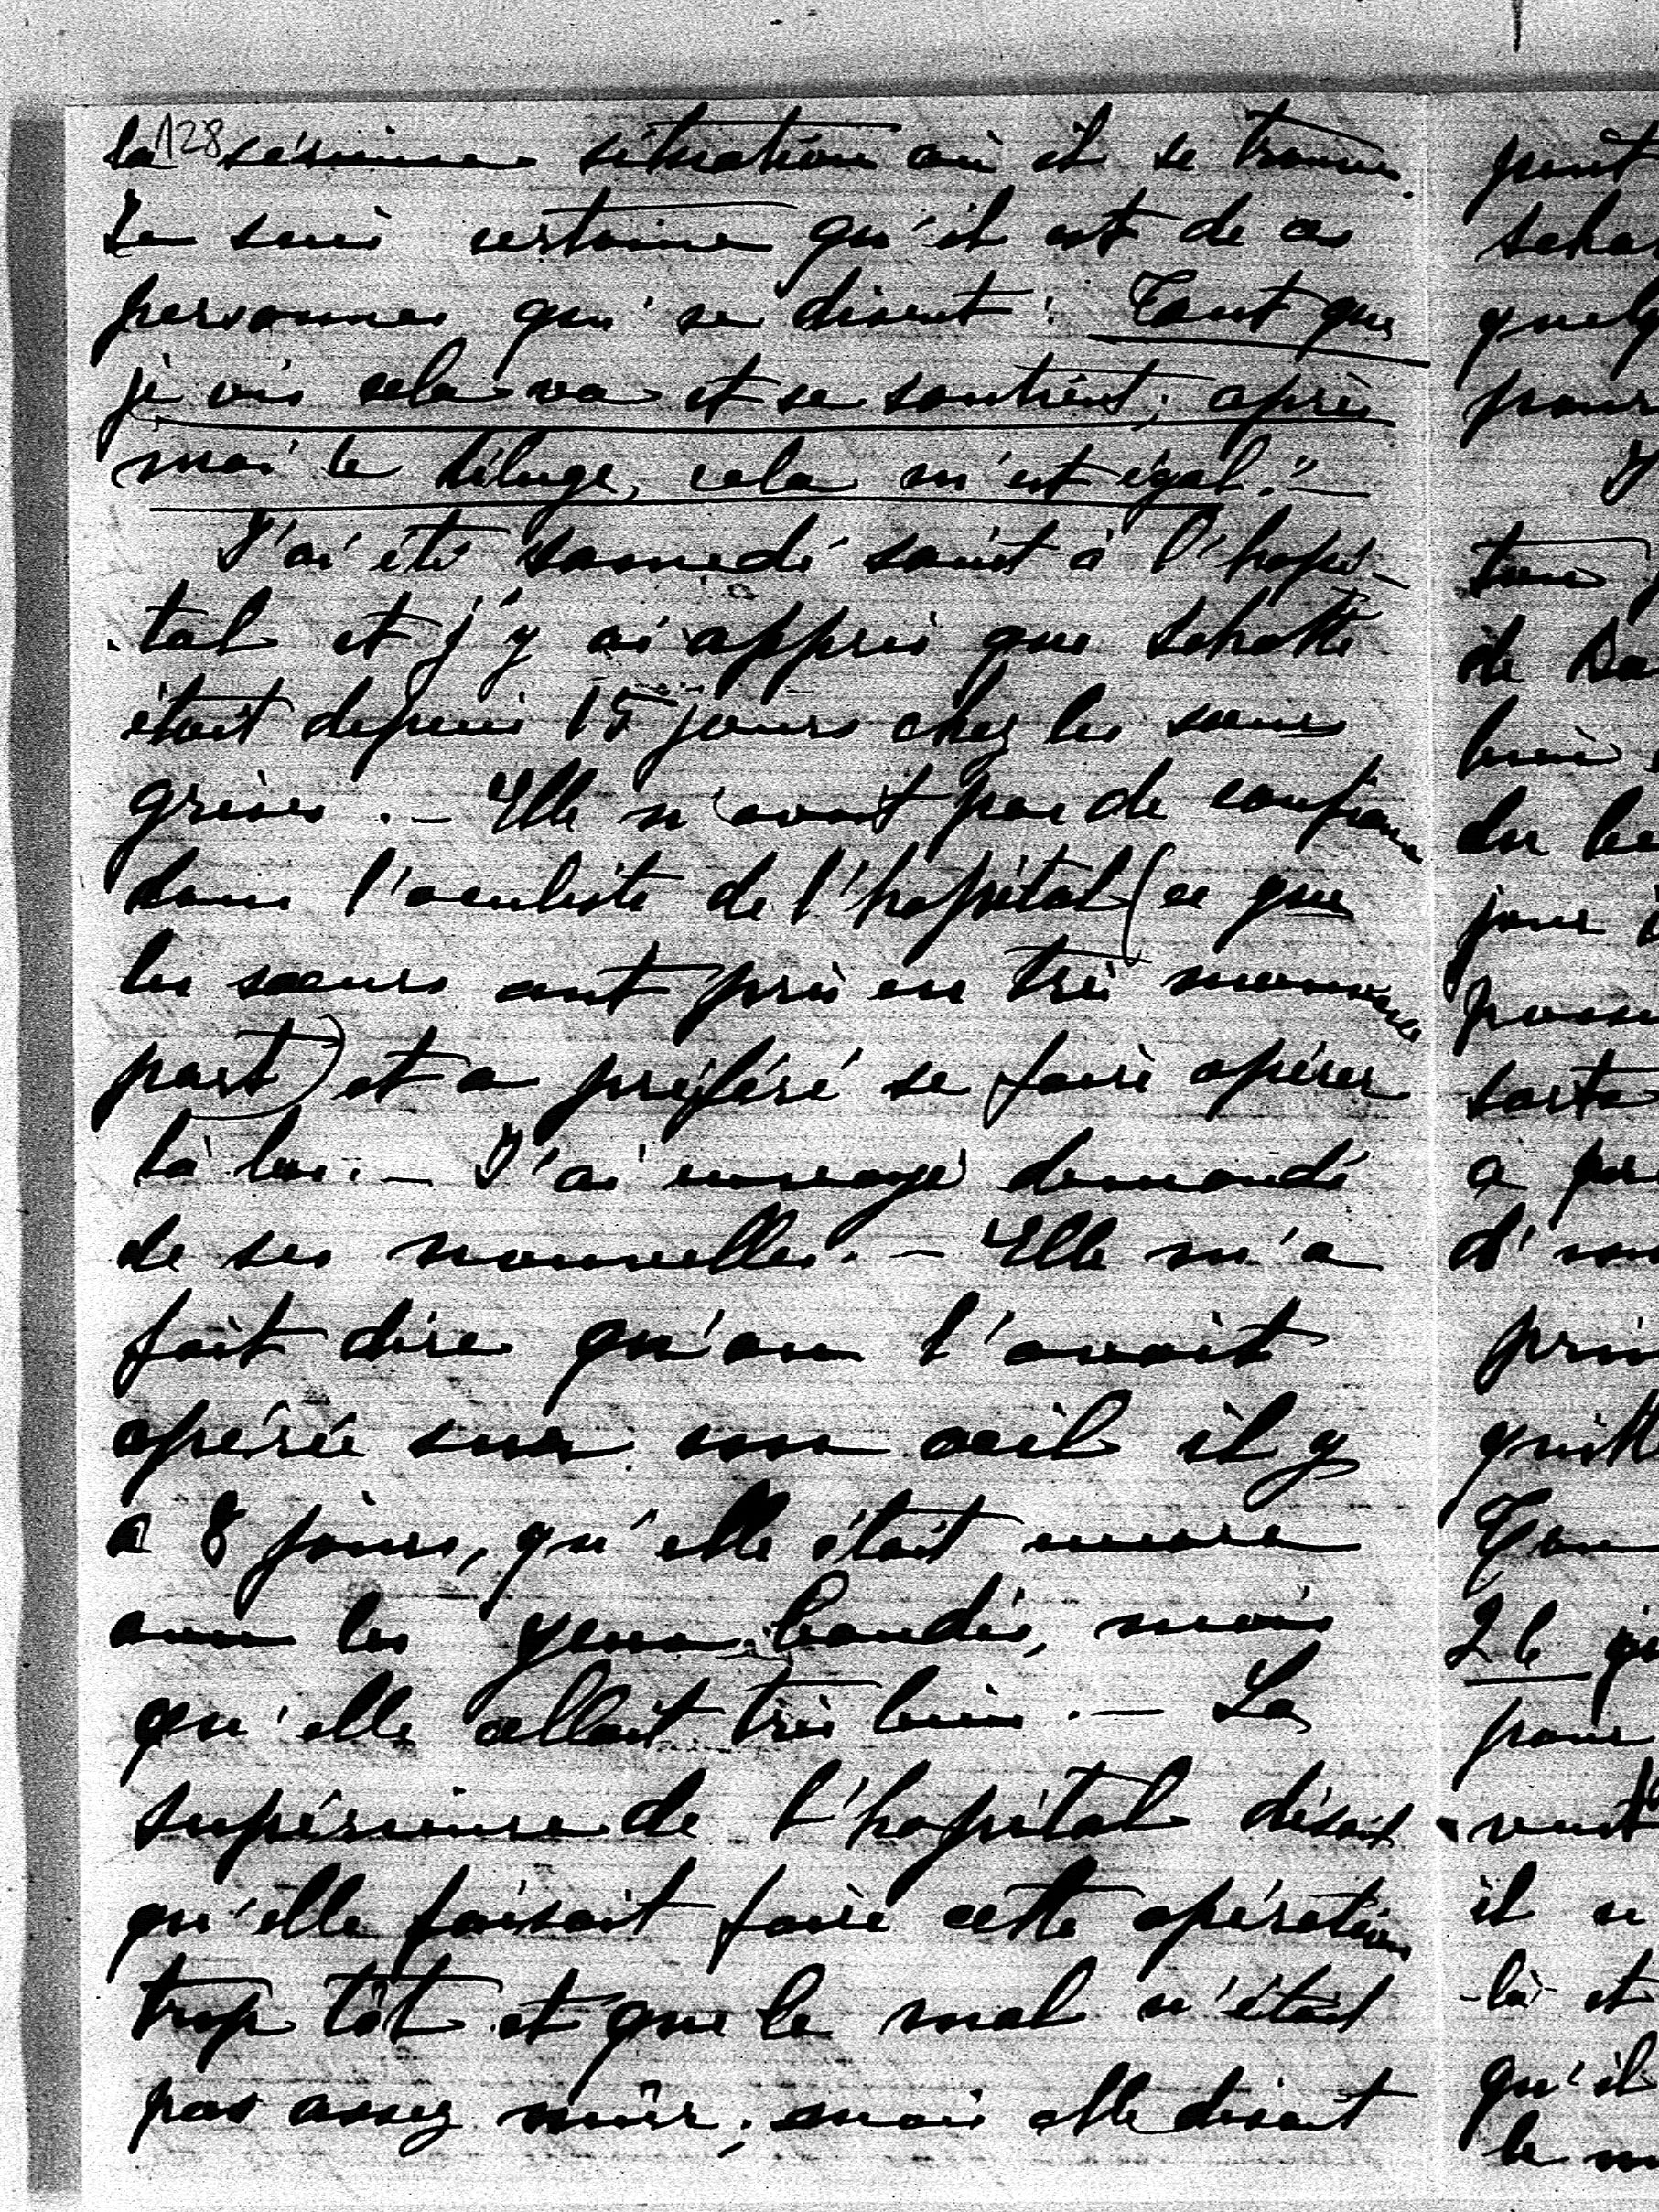 128
la sérieuse situation où il se trouve.
Je suis certaine qu'il est de ces
personnes qui se disent: Tant que
je vis cela va et se soutient; après
moi le déluge, cela m'est égal."—
J'ai été samedi saint à l'hopi-
-tal et j'y ai appris que Schotte
était depuis 15 jours chez les sœurs
grises.— Elle n'avait pas de confiance
dans l'oculiste de l'hopital (ce que
les sœurs ont pris en très mauvaise
part) et a préféré se faire opérer
là bas.— J'ai envoyé demandé
de ses nouvelles.— Elle m'a
fait dire qu'on l'avait
opérée sur son œil il y
a 8 jours, qu'elle était encore
avec les yeux bandés, mais
qu'elle allait très bien.— La
supérieure de l'hopital disait
qu'elle faisait faire cette opération
trop tôt et que le mal n'était
pas assez mûr; mais elle disait
peut
quelq
pour
ton
de
du
jour
à
d'
quitt
26
pour
il
-là et
qu'il
le